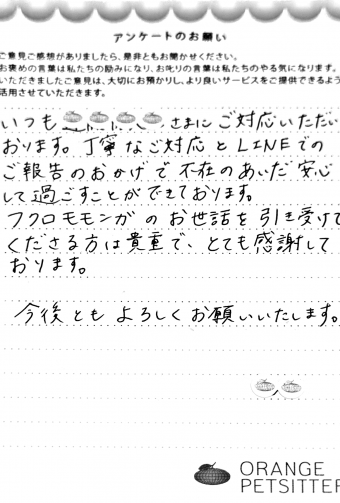 アンケートのお願い
ご意見ご感想がありましたら、是非ともお聞かせください。
お褒めの言葉は私たちの励みになり、お叱りの言葉は私たちのやる気になります。
いただきましたご意見は、大切にお預かりし、より良いサービスをご提供できるよう
活用させていただきます。
いつも さまに ご対応いただい
おります。丁寧なご対応とLINEでの
ご報告のおかげで不在のあいだ安心
して過ごすことができております。
フクロモモンガのお世話を引き受けて
くださる方は貴重で、とても感謝して
おります。
今後ともよろしくお願いいたします。
ORANGE
PETSITTER